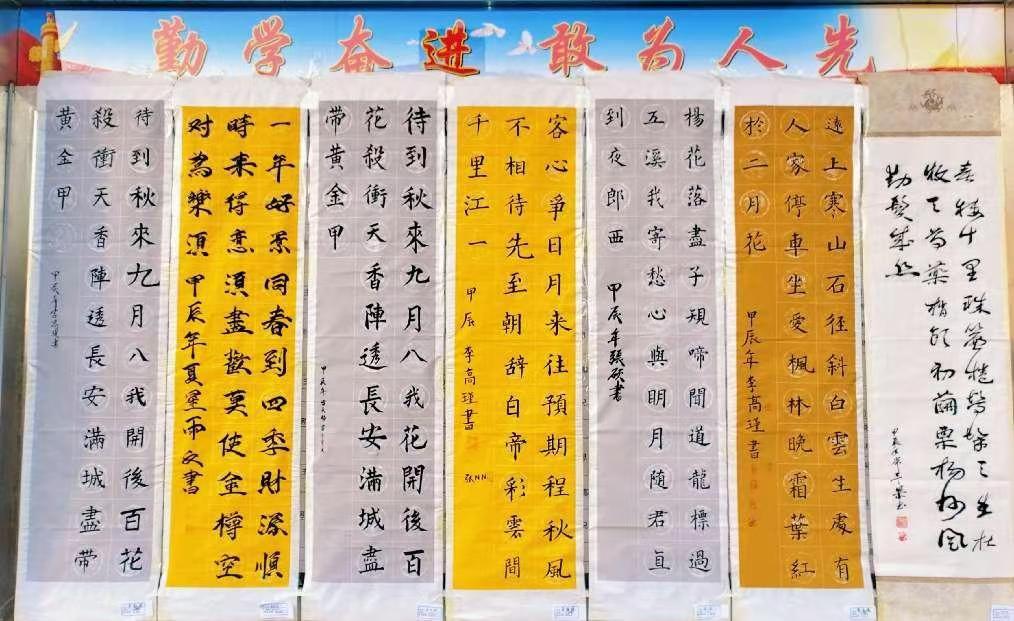 勤学奋进 敢为人先
十里珠三生杜
牧之藥梢頭初繭栗揚州風
鬢成丝
遠上寒山石径斜白雲生處有
人家停車坐愛楓林晚霜葉紅
於二月花
甲辰年李高瑾書
楊花落盡子規啼聞道龍標過
五溪我寄愁心與明月随君直
到夜郎西
甲辰年張書
客心爭日月来往預期程秋風
不相待先至朝辞白帝彩雲間
千里江一
甲辰李高瑾書
待到秋來九月八我花開後百
花殺衝天香陣透長安滿城盡
帶黄金甲
甲辰年
一年好景同春到四季財源順
時来得意須盡歡莫使金樽空
对為樂須甲辰年夏星雨文書
待到秋來九月八我開後百花
殺衝天香陣透長安滿城盡帶
黄金甲
甲辰年